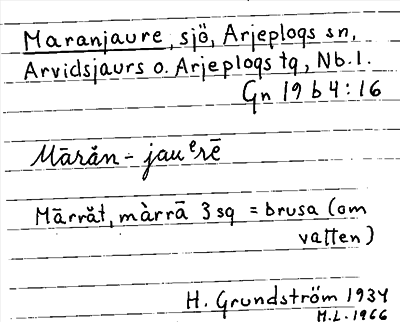 Maranjaure, sjö, Arjeplogs sn,
Arvidsjaurs o. Arjeplogs tg, Nb.l.
Gn 19 b 4:16
Mārăn - jauᵉrē
Mārrăt, màrrā 3 sg = brusa (om
vatten)
H. Grundström 1934
M.L. 1966